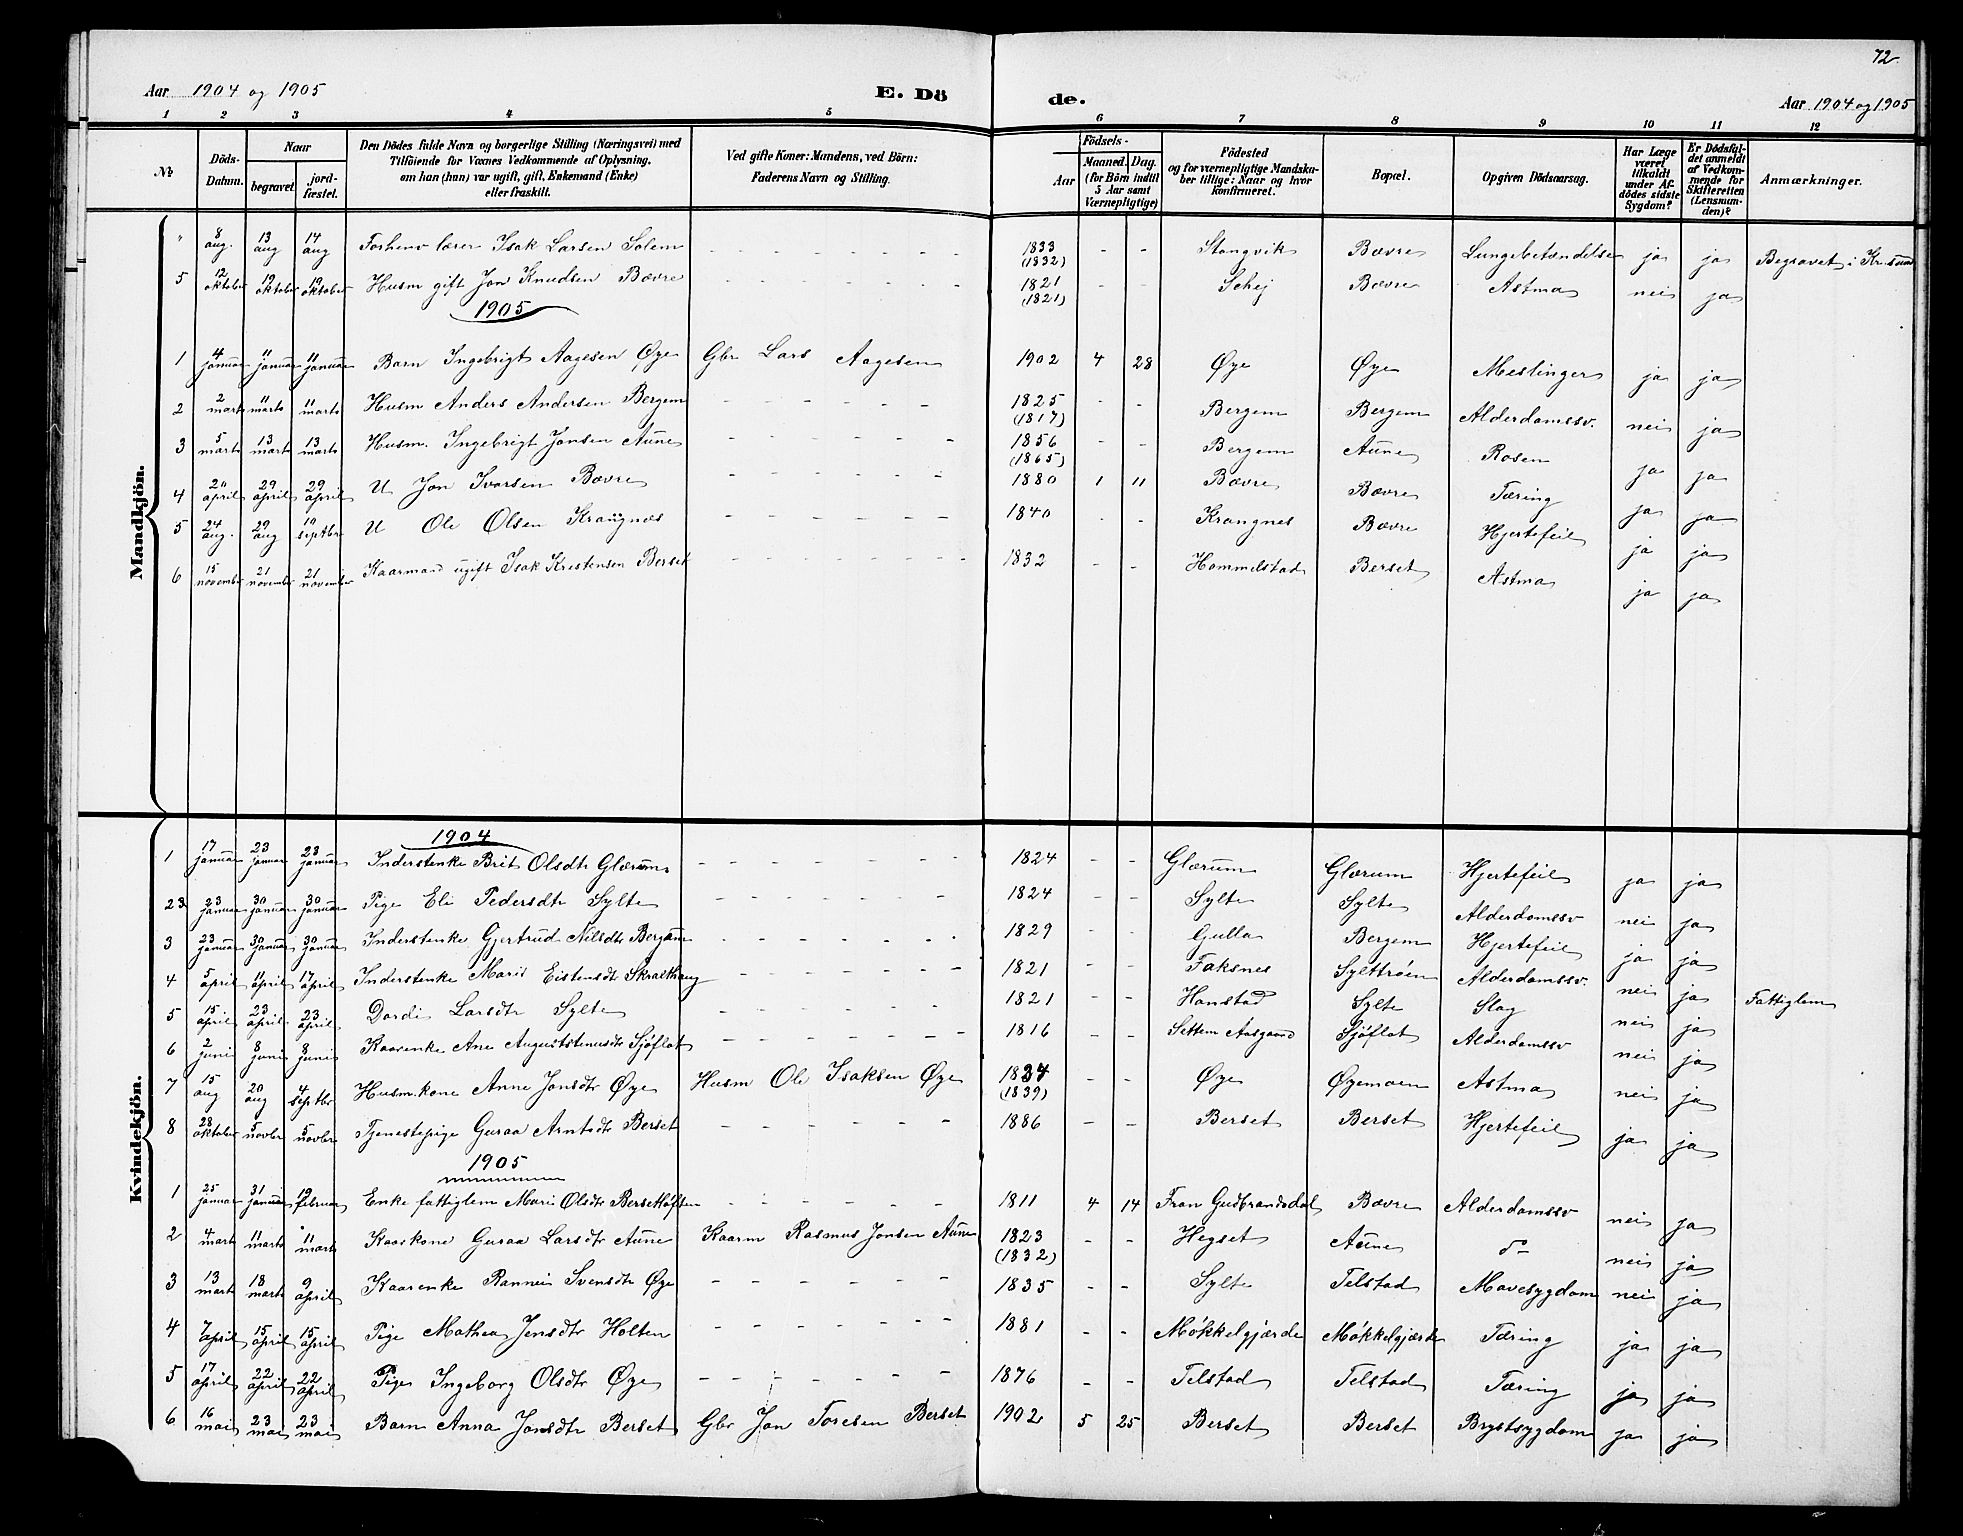 72.
Aar 1904 og 1905 E. Dö de. Aar 1904 og 1905
1 2 3 4 5 6 7 8 9 10 11 12
№ Döds-Datum. Naar begravet. jord-fæstet. Den Dödes fulde Navn og borgerlige Stilling (Næringsvei) med Tilföiende for Voxnes Vedkommende af Oplysning, om han (hun) var ugift, gift, Enkemand (Enke) eller fraskilt. Ved gifte Koner: Mandens, ved Börn: Faderens Navn og Stilling. Födsels- Aar Maaned. Dag. (for Börn indtil 5 Aar samt Værnepligtige) Födested og for værnepligtige Mandskaber tillige: Naar og hvor konfirmeret. Bopæl. Opgiven Dödsaarsag. Har Læge været tilkaldt under Afdödes sidste Sygdom? Er Dödsfaldet anmeldt af Vedkommende for Skifteretten (Lensmanden)? Anmærkninger.
Mandkjön.
" 8 aug. 13 aug 14 aug Forhenv lærer Isak Larsen Solem - - - - - - 1833 (1832) - - Stangvik Bævre Lungebetændelse ja ja Begravet i Kr.sund
5 12 oktober 19 oktober 19 oktober Husm gift Jon Knudsen Bævre - - - - - - 1821 (1821) - - Schej Bævre Astma nei ja
1905
1 4 januar 11 januar 11 januar Barn Ingebrigt Aagesen Øye Gbr Lars Aagesen 1902 4 28 Øye Øye Meslinger ja ja
2 2 marts 11 marts 11 marts Husm Anders Andersen Bergem - - - - - - 1825 (1817) - - Bergem Bergem Alderdomssv. nei ja
3 5 marts 13 marts 13 marts Husm. Ingebrigt Jonsen Aune - - - - - - 1856 (1865) - - Bergem Aune Rosen ja ja
4 20 april 29 april 29 april U Jon Ivarsen Bævre - - - - - 1880 1 11 Bævre Bævre Tæring ja ja
5 24 aug. 29 aug 19 septbr U Ole Olsen Krangnæs - - - - - - 1840 - - Krangnes Bævre Hjertefeil ja ja
6 15 november 21 november 21 november Kaarmand ugift Isak Kristensen Berset - - - - - - 1832 - - Hommelstad Berset Astma ja ja
Kvindekjön.
1904
1 17 januar 23 januar 23 januar Inderstenke Brit Olsdtr Glærum - - - - - - 1824 - - Glærum Glærum Hjertefeil ja ja
2 23 januar 30 januar 30 januar Pige Eli Pedersdtr Sylte - - - - - - 1824 - - Sylte Sylte Alderdomssv nei ja
3 23 januar 30 januar 30 januar Inderstenke Gjertrud Nilsdtr Bergem - - - - - - 1829 - - Gulla Bergem Hjertefeil ja ja
4 5 april 11 april 17 april Inderstenke Marit Eistensdtr Skralthaug - - - - - - 1821 - - Faksnes Sylttrøen Alderdomssv. nei ja
5 15 april 23 april 23 april Dordi Larsdtr Sylte - - - - - - 1821 Hanstad Sylte Slag nei ja Fattiglem
6 2 juni 8 juni 8 juni Kaarenke Ane Auguststinusdtr Sjøflot - - - - - - 1816 - - Settem Aasgaard Sjøflot Alderdomssv nei ja
7 15 aug 20 aug 4 septbr Husm.kone Anne Jonsdtr Øye Husm Ole Isaksen Øye 1834 (1839) - - Øye Øyemoen Astma nei ja
8 28 oktober 5 novbr 5 novbr Tjenestepige Guraa Arntsdtr Berset - - - - - - 1886 - - Berset Berset Hjertefeil ja ja
1905
1 25 januar 31 januar 19 februar Enke fattiglem Mari Olsdtr Bersethøften - - - - - 1811 4 14 Fron Gudbrandsdal Bævre Alderdomssv nei ja
2 4 marts 11 marts 11 marts Kaarkone Guraa Larsdtr Aune Kaarm Rasmus Jonsen Aune 1823 (1832) - - Hegset Aune do nei ja
3 13 marts 18 marts 9 april Kaarenke Rannei Svensdtr Øye - - - - - - 1835 - - Sylte Telstad Mavesygdom nei ja
4 7 april 15 april 15 april Pige Mathea Jensdtr Holten - - - - - - 1881 - - Møkkelgjærde Møkkelgjærde Tæring ja ja
5 17 april 22 april 22 april Pige Ingeborg Olsdtr Øye - - - - - - 1876 - - Telstad Telstad Tæring ja ja
6 16 mai 23 mai 23 mai Barn Anna Jonsdtr Berset Gbr Jon Toresen Berset 1902 5 25 Berset Berset Brystsygdom ja ja